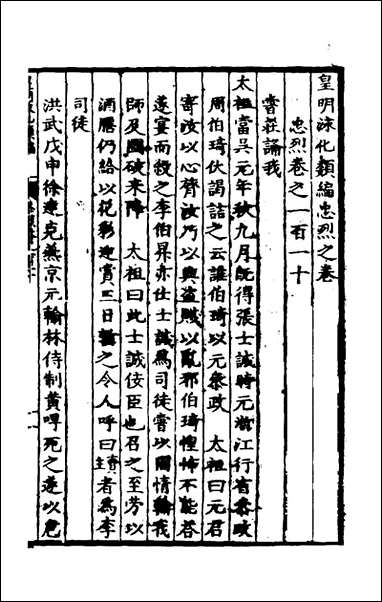 皇明泳化類編忠烈之卷
忠烈卷之一百一十
賞莊誦我
太祖當吳元年秋九月既得張士誠時元浙江行省叅政
周伯琦伏謁詰之云誰伯琦以元叅政 太祖曰元君
寄汝以心膂汝乃以與盜賊以亂邪伯琦惶怖不能荅
遂宴而殺之李伯昇亦仕士誠爲司徒嘗以國情輸我
師及國破來降 太祖曰此士誠佞臣也召之至芳以
酒醴仍給以花彩迎賞三日斬之令人呼曰賣者爲李
司徒
洪武戊申徐達克燕京元翰林侍制黃哻死之遂以危